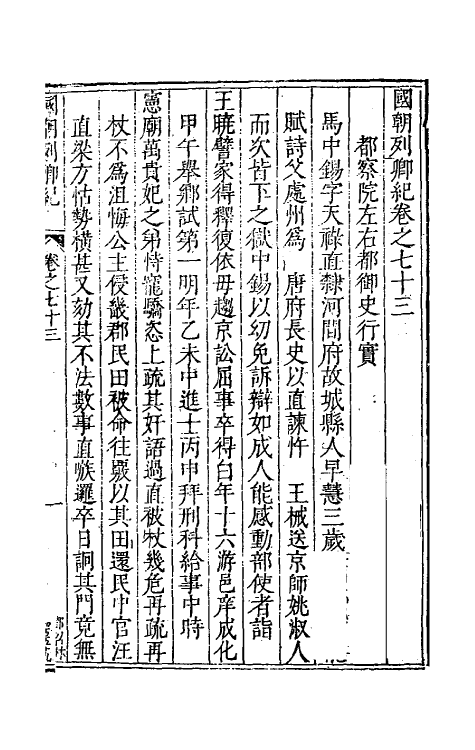 國朝列卿紀卷之七十三
都察院左右都御史行實
馬中錫字天祿直隸河間府故城縣人早慧三歲
賦詩父處州爲　唐府長史以直諫忤　王械送京師姚淑人
而次皆下之獄中錫以幼免訴辯如成人能感動部使者詣
王曉譬家得釋復依毋趨京訟屈事卒得白年十六游邑庠成化
甲午舉鄉試第一明年乙未中進士丙申拜刑科給事中時
憲廟萬貴妃之弟恃寵驕恣上疏其奸語過直被杖幾危再疏再
杖不爲沮悔公主侵畿郡民田被命往覈以其田還民中官汪
直梁方怙勢橫甚又劾其不法數事直嗾邏卒日詗其門竟無
國朝列卿紀
卷之七十三
一